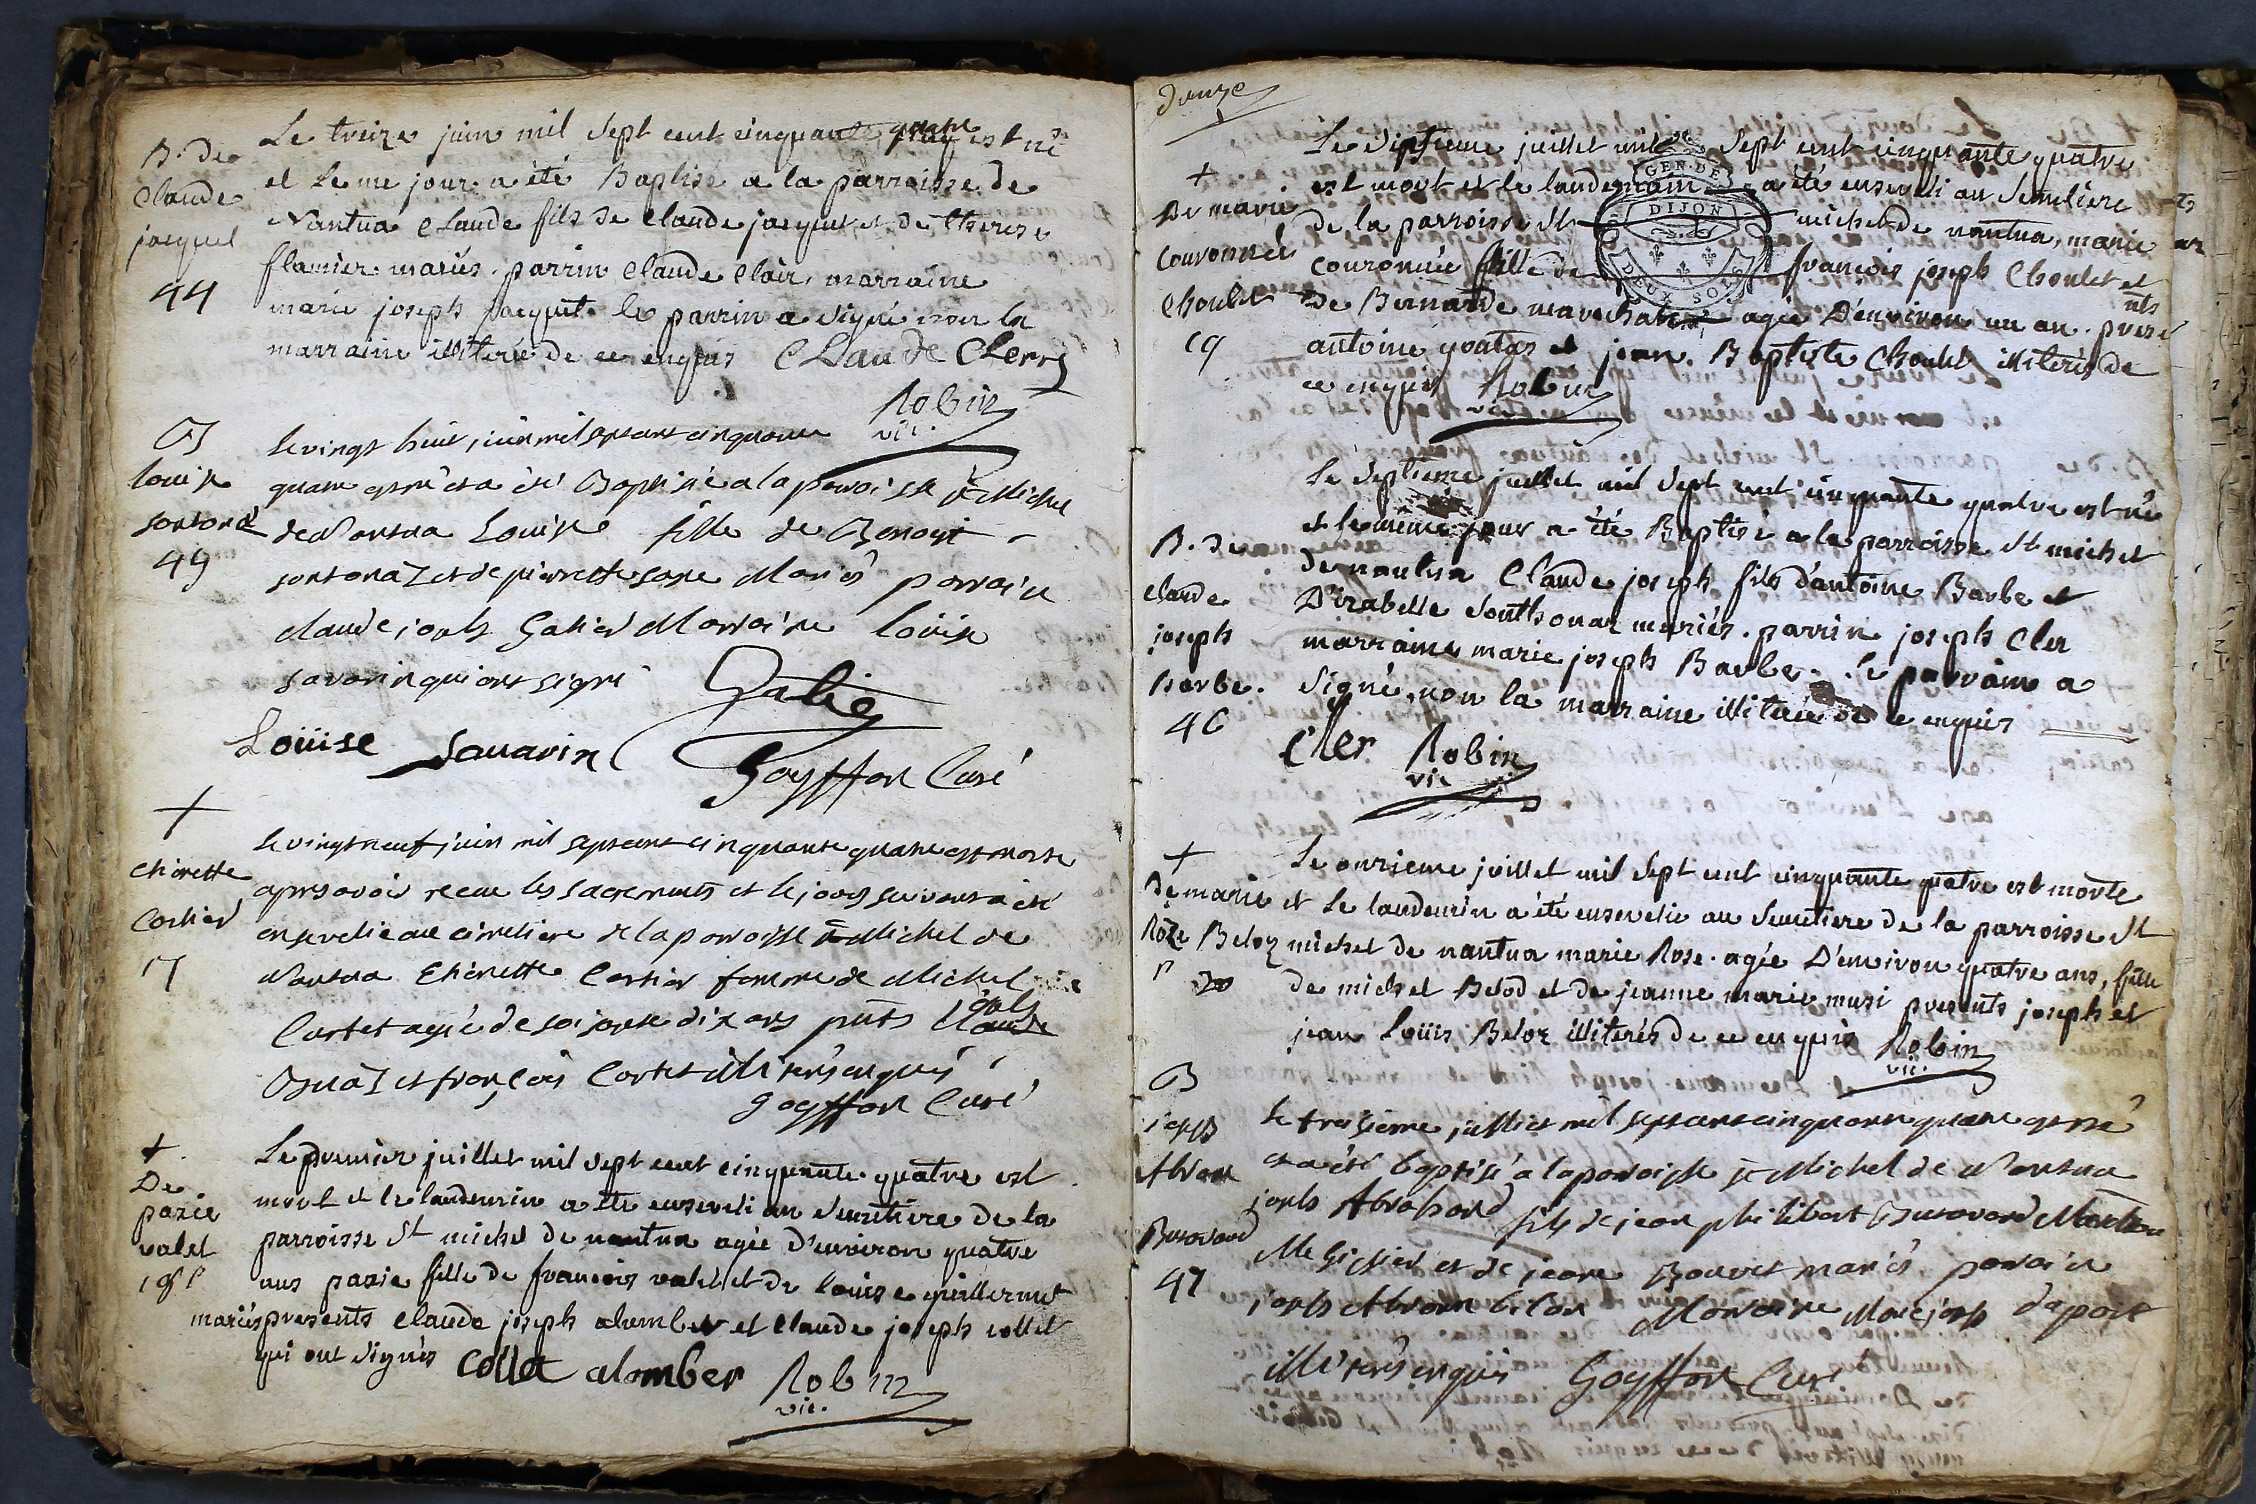 B. de
Claude
jacquet
44
Le treize juin mil sept cent cinquante quatre est né
et le me jour a été Baptisé a la parroisse de
Nantua Claude fils de Claude jacquet et de therese
flamier mariés. parrin Claude Clair, marraine
marie joseph jacquet. le parrin a signé non la
marraine illiterée de ce enquis Claude Clerc
Robin
vic.
B
Louise
sontonaz
45
le vingt huit juin mil sept cent cinquante
quatre est née et a été Baptisée a la paroisse st Michel
de Nantua Louise fille de Benoit
sontonaz et de pierrette mariés parrain
claude joseph Galier Marraine Louise
savarin qui ont signé Galie
Louise savarin Goyffon Curé
+
thévette
Cartier
17
le vingt neuf juin mil sept cent cinquante quatre est morte
apres avoir receu les sacrements et le jour suivant a été
ensevelie au cimetiere de la paroisse st Michel de
Nantua thévette Cartier femme de Michel
Cartet agée de soisante dix ans pnts
et françois Cartet illiterés enquis
goyffon Curé
+
De
pazie
valet
18
Le premier juillet mil sept cent cinquante quatre est
mort et le landemin a été enseveli au semetiere de la
parroisse st michel de nantua agée d'environ quatre
ans pazie fille de francois valet et de louise guillermet
mariés presents claude joseph alomber et claude joseph collet
qui ont signés Collet alomber Robin
vic.
douze
+
De marie
Couronnée
Choulet
19
Le septieme juillet mil sept cent cinquante quatre
est mort et le landemain a été enseveli au semetiere
de la parroisse st michel de nantua, marie
couronnée fille de francois joseph Choulet et
de Bernarde marechal agée D'environ un an. presents
antoine et jean Baptiste Choulet illiterés de
ce enquis Robin
vic.
GEN. DE
DIJON
DEUX SOLS
B. de
claude
joseph
Barbe.
46
Le septieme juillet mil sept cent cinquante quatre est né
et le meme jour a été Baptisé a la parroisse st michel
de nantua Claude joseph fils d'antoine Barbe et
D'izabelle Sonthonax mariés. parrin joseph Cler
marraine marie joseph Barbe. le parrain a
signé, non la marraine illiterée de ce enquis
Cler Robin
vic
+
De marie
Roze Beloz
20
Le onzieme juillet mil sept cent cinquante quatre est morte
et le landemin a été ensevelie au semetiere de la parroisse st
michel de nantua marie Rose agée D'environ quatre ans, fille
de michel Belod et de jeanne marie musi presents joseph et
jean Loüis Beloz illiterés de ce enquis Robin
vic.
B
47
le treisieme juillet mil sept cent cinquante quatre est né
et a été baptisé a la paroisse st Michel de Nantua
joseph Abraham fils de jean philibert
et de jeane Bouvet mariés parrain
joseph Abraam Marraine Marie joseph
illiterés enquis Goyffon Curé